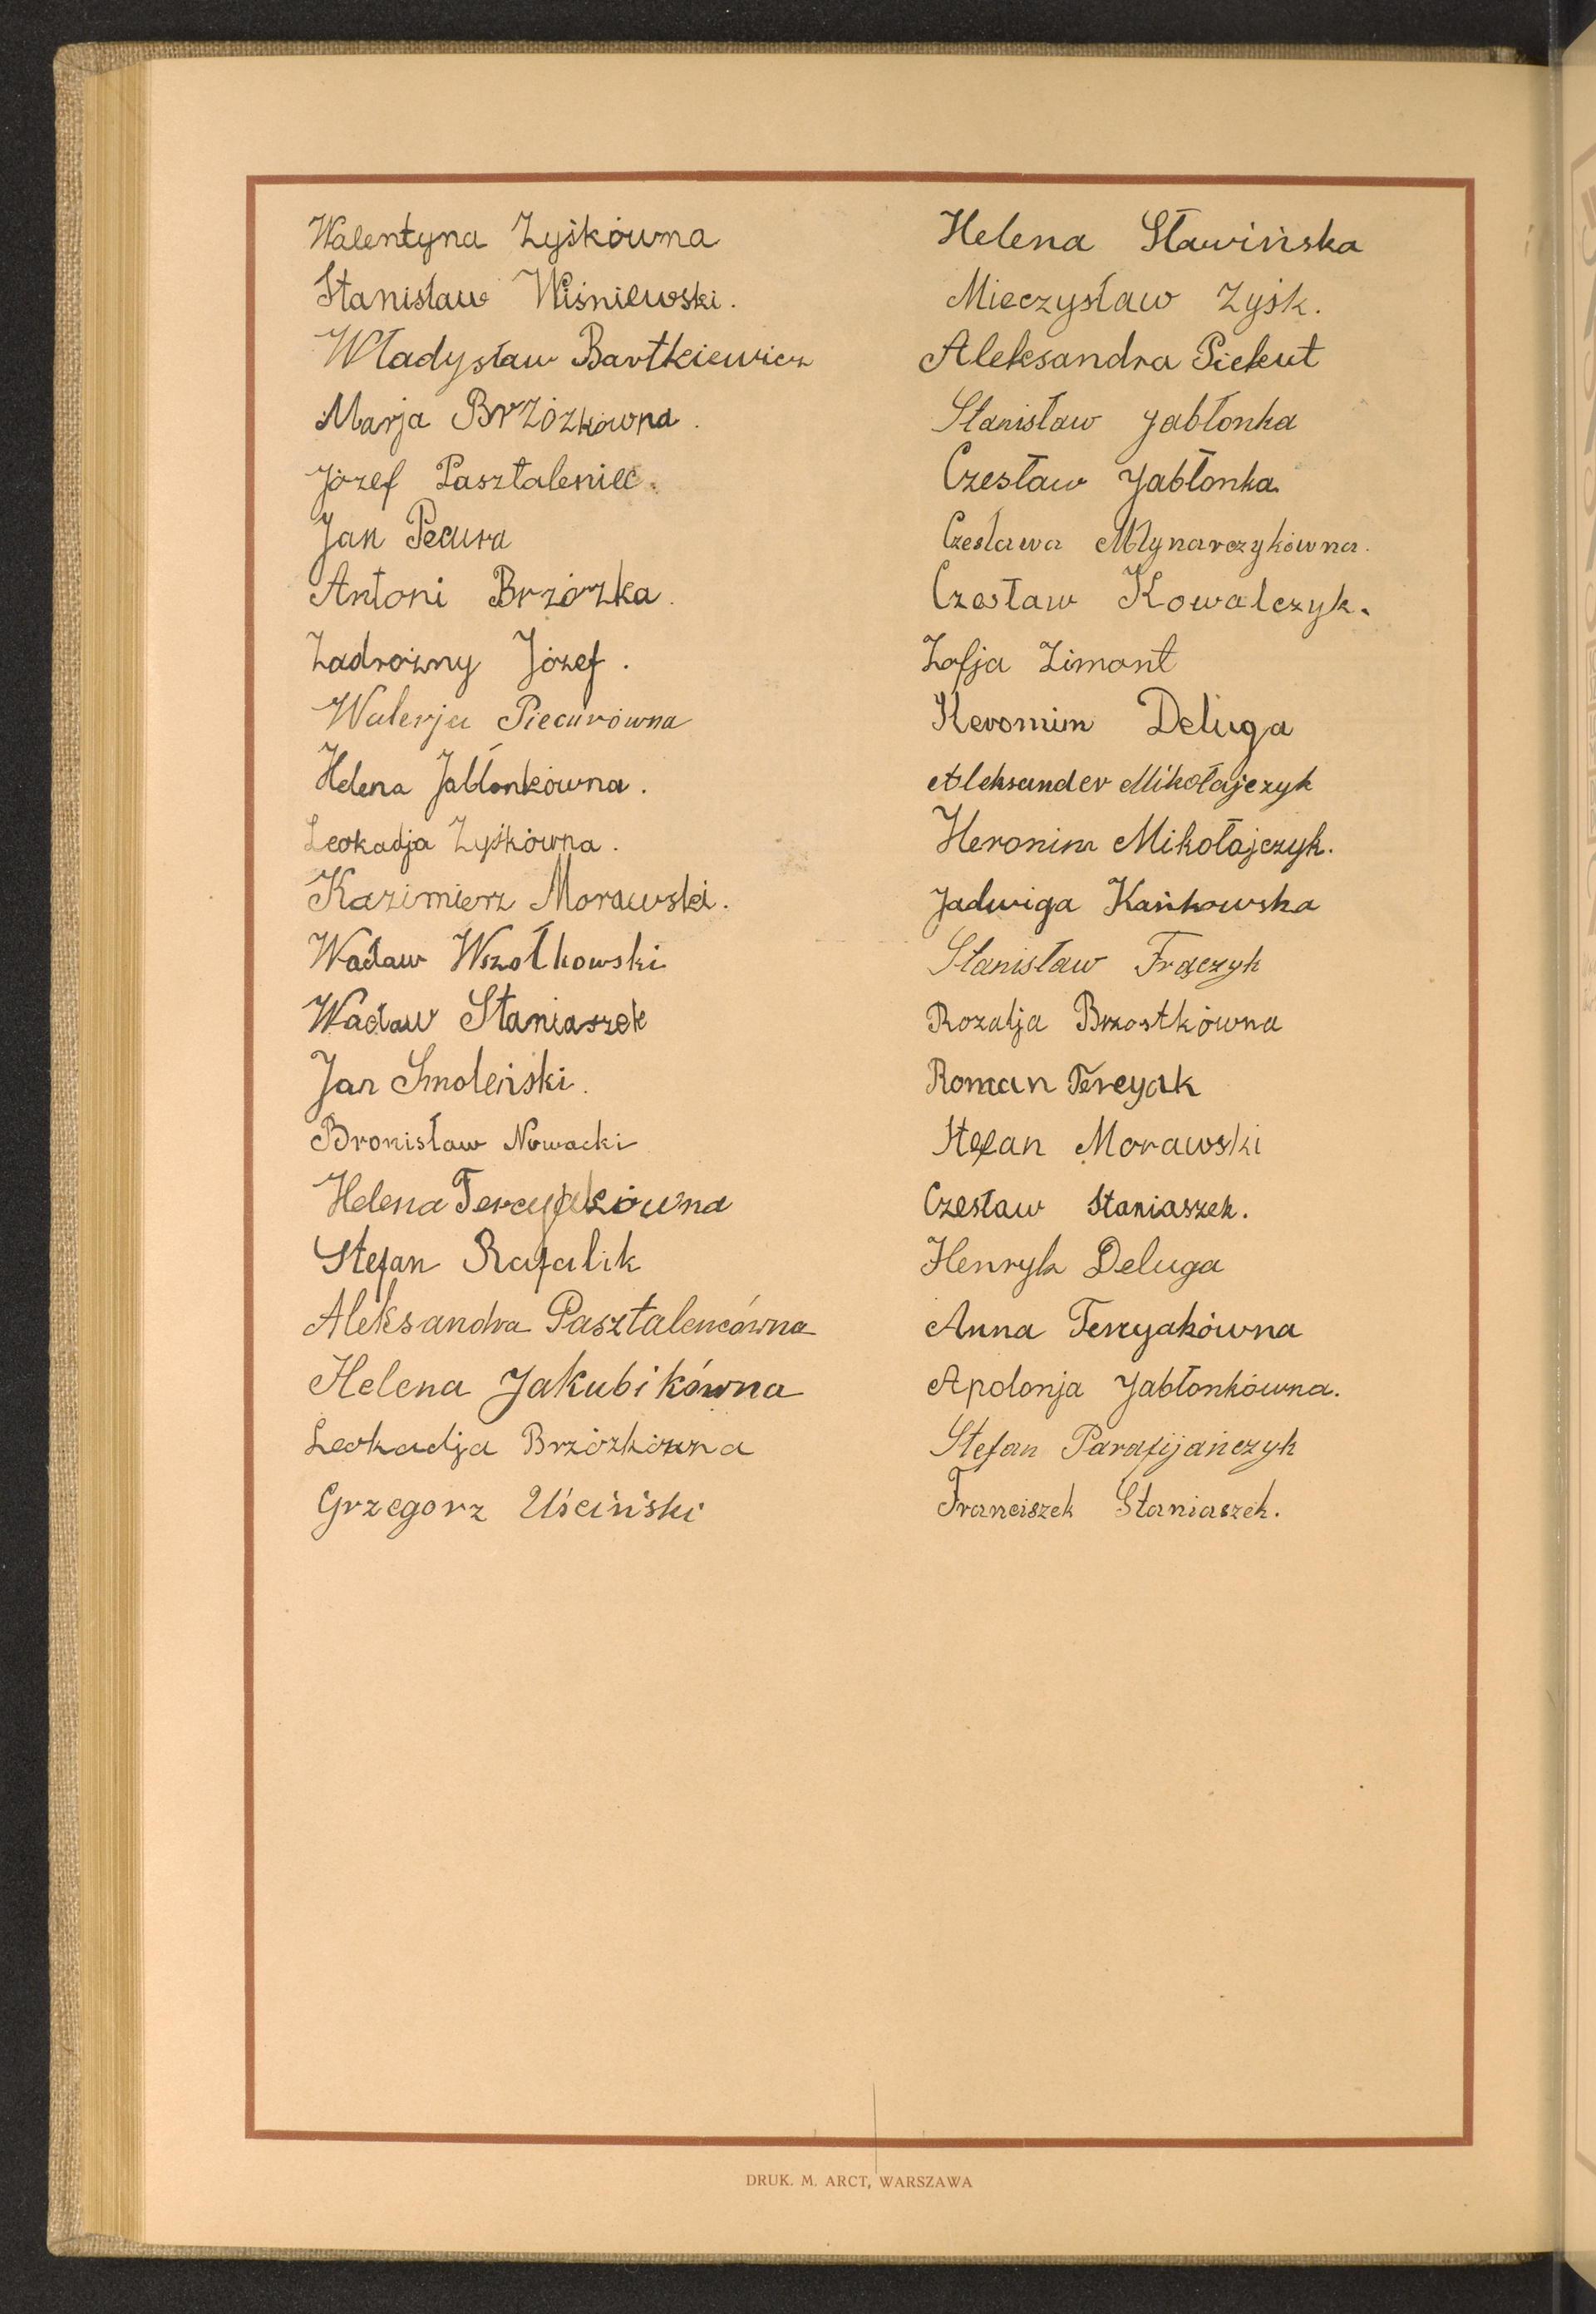 Walentyna Zyśkówna
Stanisław Wiśniewski.
Władysław Bartkiewicz
Marja Brzózkówna.
Józef Pasztaleniec.
Jan Pecura
Antoni Brzózka.
Zadrożny Józef.
Walerja Piecurówna
Helena Jabłonkówna.
Leokadja Zyśkówna.
Kazimierz Morawski.
Wacław Wszołkowski
Wacław Staniaszek
Jan Smoleński.
Bronisław Nowacki
Helena Tercyakówna
Stefan Rafalik
Aleksandra Pasztalencówna
Helena Jakubikówna
Leokadja Brzózkówna
Grzegorz Uściński
Helena Sławińska
Mieczysław Zyśk.
Aleksandra Piekut
Stanisław Jabłonka
Czesław Jabłonka
Czesława Młynarczykówna.
Czesław Kowalczyk.
Zofja Zimont
Heronim Deluga
Aleksander Mikołajczyk
Heronim Mikołajczyk.
Jadwiga Kańkowska
Stanisław Frączyk
Rozalja Brzostkówna
Roman Tercyak
Stefan Morawski
Czesław Staniaszek.
Henryk Deluga
Anna Tercyakówna
Apolonja Jabłonkówna.
Stefan Parafijańczyk
Franciszek Staniaszek.
DRUK. M. ARCT, WARSZAWA